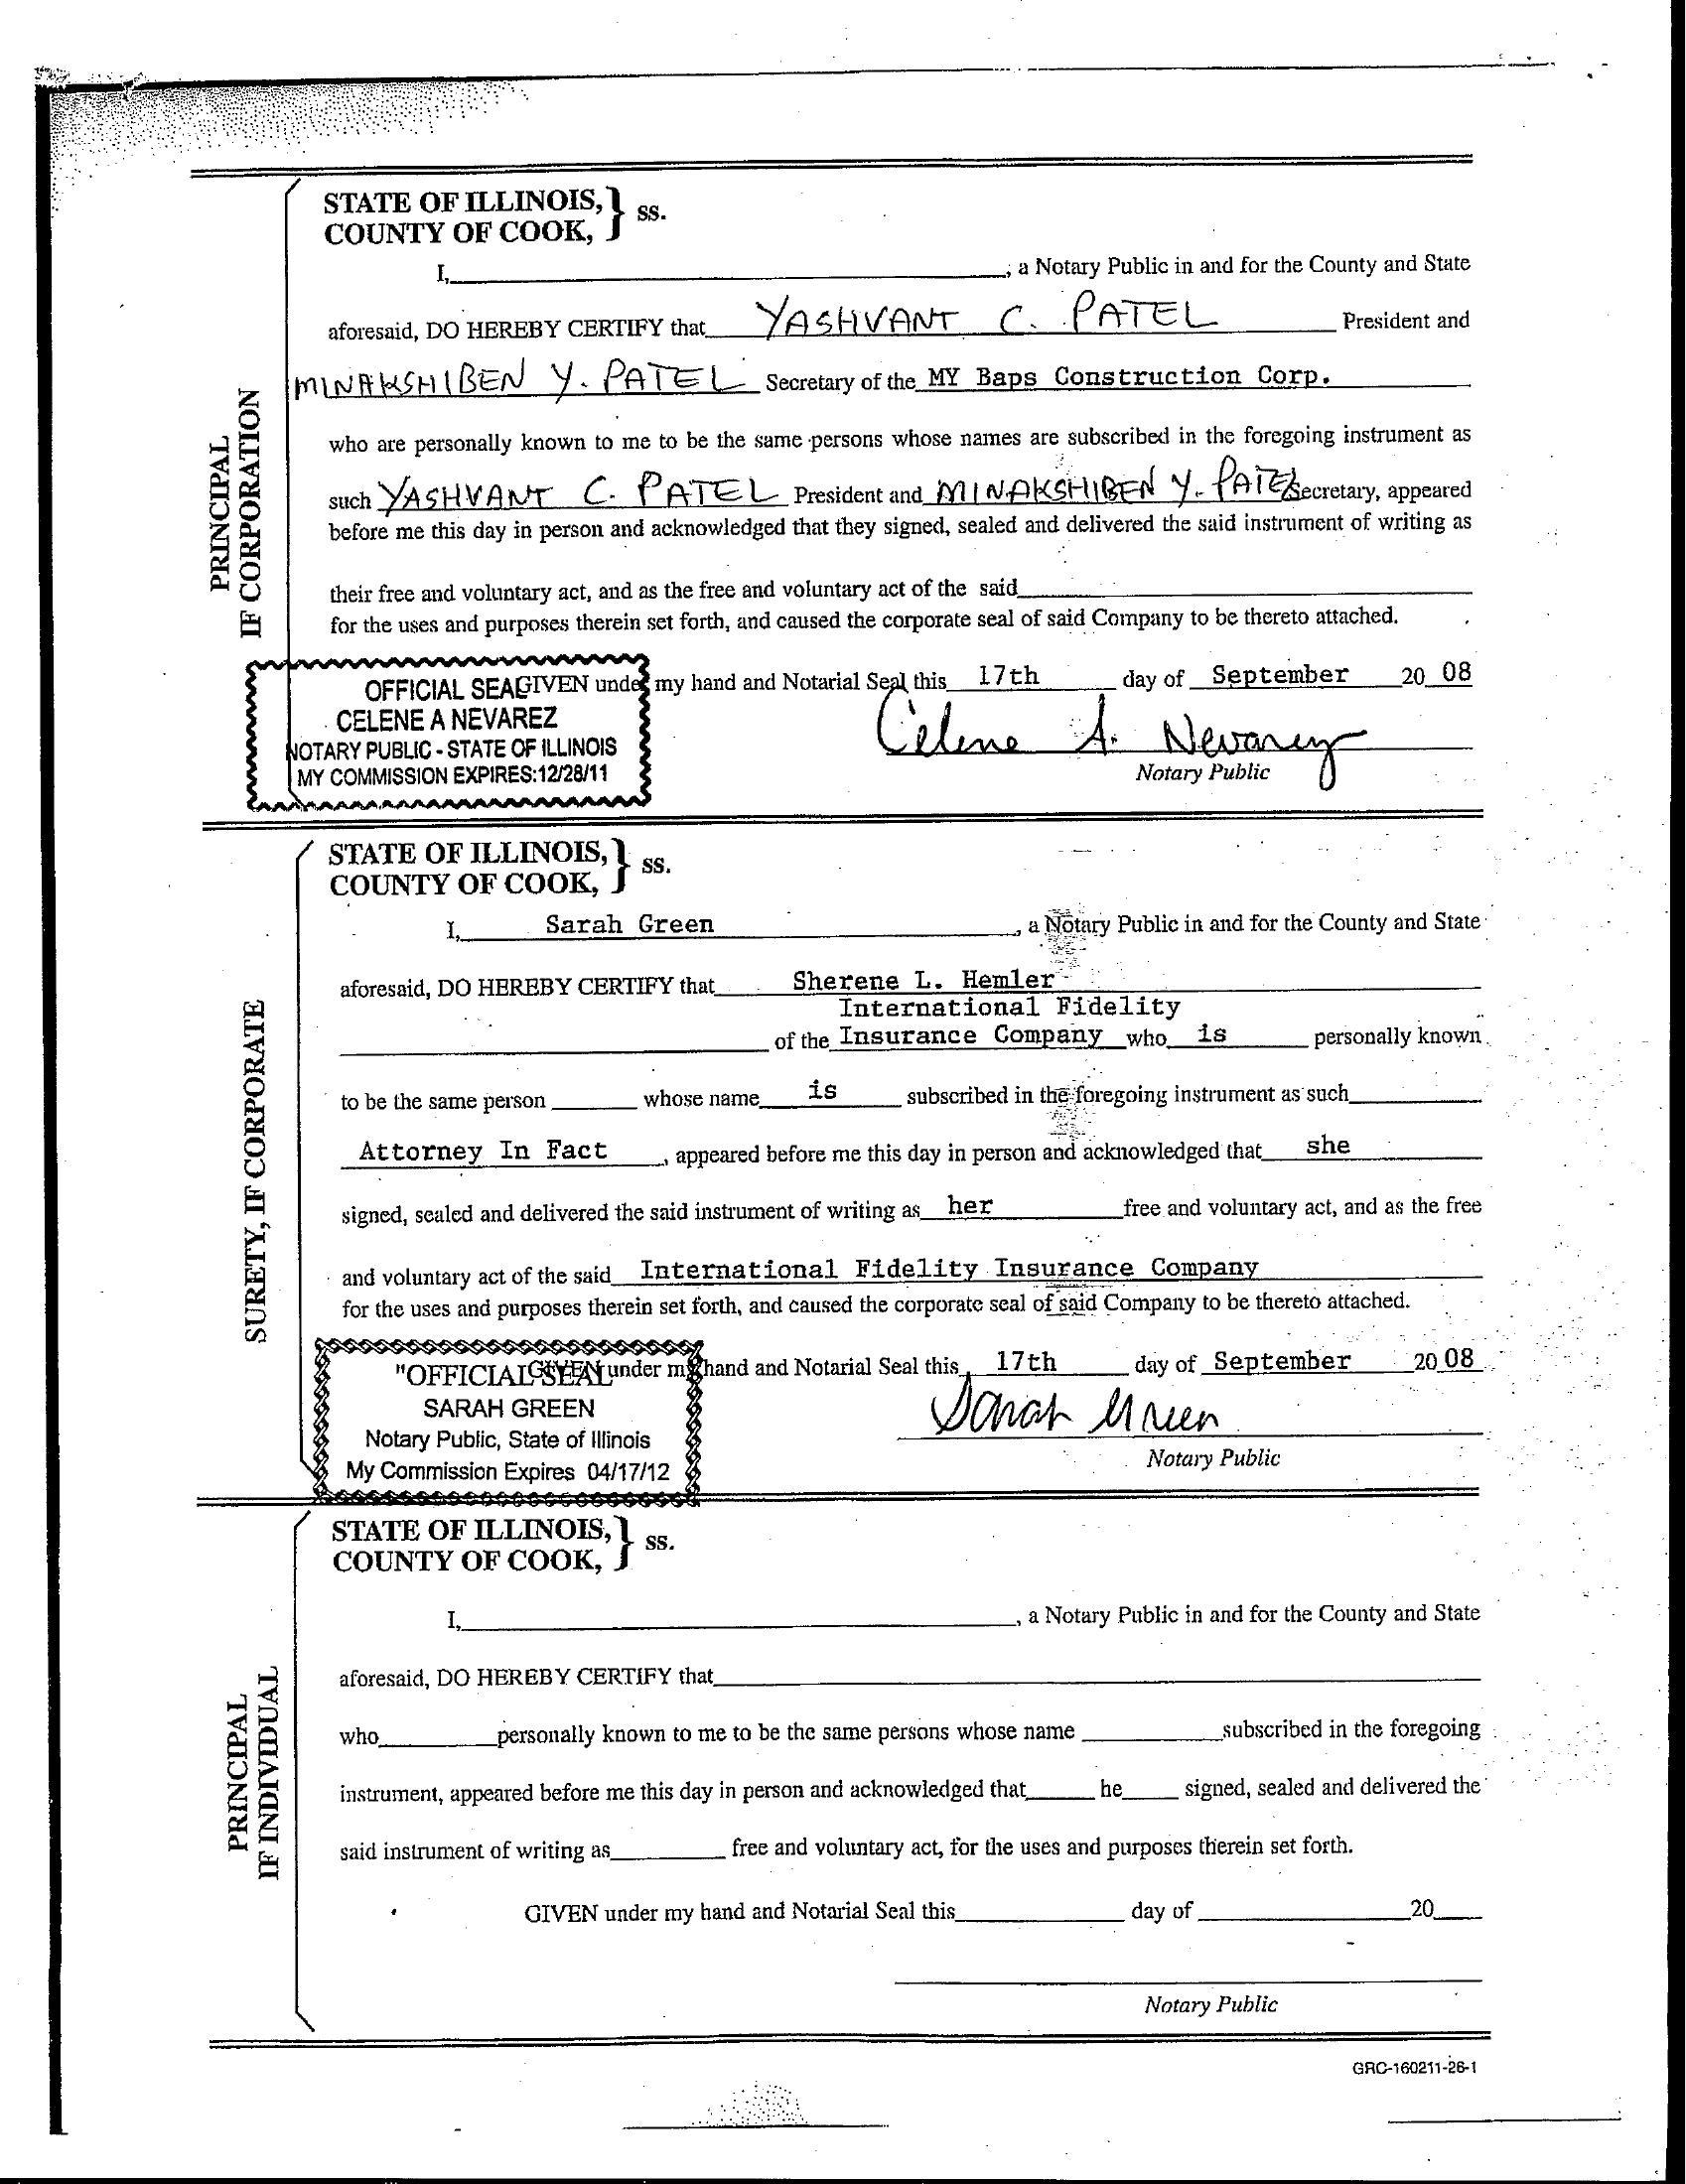 STATE OF ILLINOIS, } ss.
COUNTY OF COOK,
I, , a Notary Public in and for the County and State
aforesaid, DO HEREBY CERTIFY that YASHVANT C. PATEL President and
MINAKSHIBEN Y. PATEL Secretary of the MY Baps Construction Corp.
who are personally known to me to be the same persons whose names are subscribed in the foregoing instrument as
such YASHVANT C. PATEL President and MINAKSHIBEN Y. PATEL Secretary, appeared
before me this day in person and acknowledged that they signed, sealed and delivered the said instrument of writing as
their free and voluntary act, and as the free and voluntary act of the said
for the uses and purposes therein set forth, and caused the corporate seal of said Company to be thereto attached.
GIVEN under my hand and Notarial Seal this 17th day of September 20 08
Celene A. Nevarez
Notary Public
OFFICIAL SEAL
CELENE A NEVAREZ
NOTARY PUBLIC - STATE OF ILLINOIS
MY COMMISSION EXPIRES:12/28/11
PRINCIPAL
IF CORPORATION
STATE OF ILLINOIS, } ss.
COUNTY OF COOK,
I, Sarah Green , a Notary Public in and for the County and State
aforesaid, DO HEREBY CERTIFY that Sherene L. Hemler
International Fidelity
of the Insurance Company who is personally known
to be the same person whose name is subscribed in the foregoing instrument as such
Attorney In Fact , appeared before me this day in person and acknowledged that she
signed, sealed and delivered the said instrument of writing as her free and voluntary act, and as the free
and voluntary act of the said International Fidelity Insurance Company
for the uses and purposes therein set forth, and caused the corporate seal of said Company to be thereto attached.
GIVEN under my hand and Notarial Seal this 17th day of September 20 08
Sarah Green
Notary Public
"OFFICIAL SEAL
SARAH GREEN
Notary Public, State of Illinois
My Commission Expires 04/17/12
SURETY, IF CORPORATE
STATE OF ILLINOIS, } ss.
COUNTY OF COOK,
I, , a Notary Public in and for the County and State
aforesaid, DO HEREBY CERTIFY that
who personally known to me to be the same persons whose name subscribed in the foregoing
instrument, appeared before me this day in person and acknowledged that he signed, sealed and delivered the
said instrument of writing as free and voluntary act, for the uses and purposes therein set forth.
GIVEN under my hand and Notarial Seal this day of 20
Notary Public
PRINCIPAL
IF INDIVIDUAL
GRC-160211-26-1